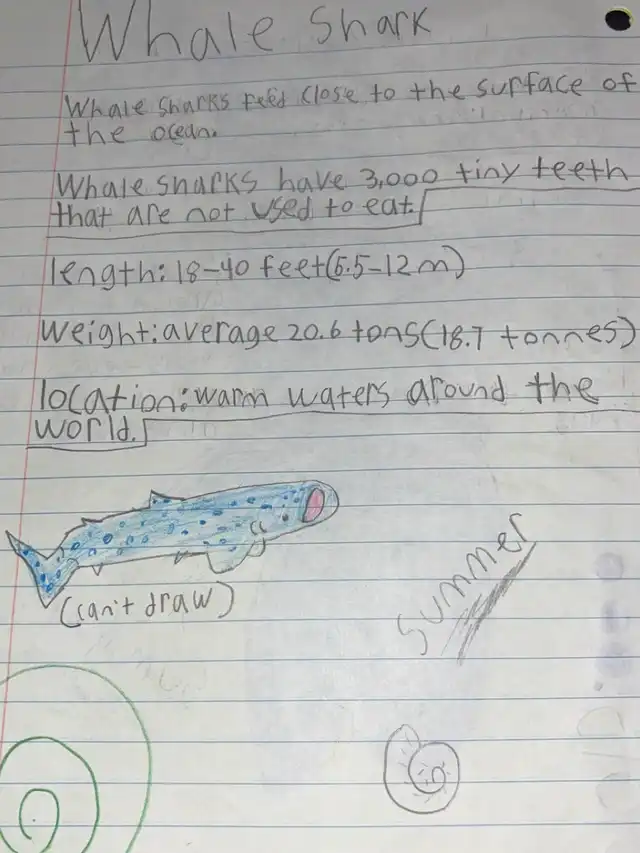 Whale Shark
Whale sharks feed close to the surface of
the ocean.
Whale sharks have 3,000 tiny teeth
that are not used to eat.
length: 18-40 feet (5.5-12 m)
weight: average 20.6 tons (18.7 tonnes)
location: warm waters around the
world.
(can't draw)
Summer